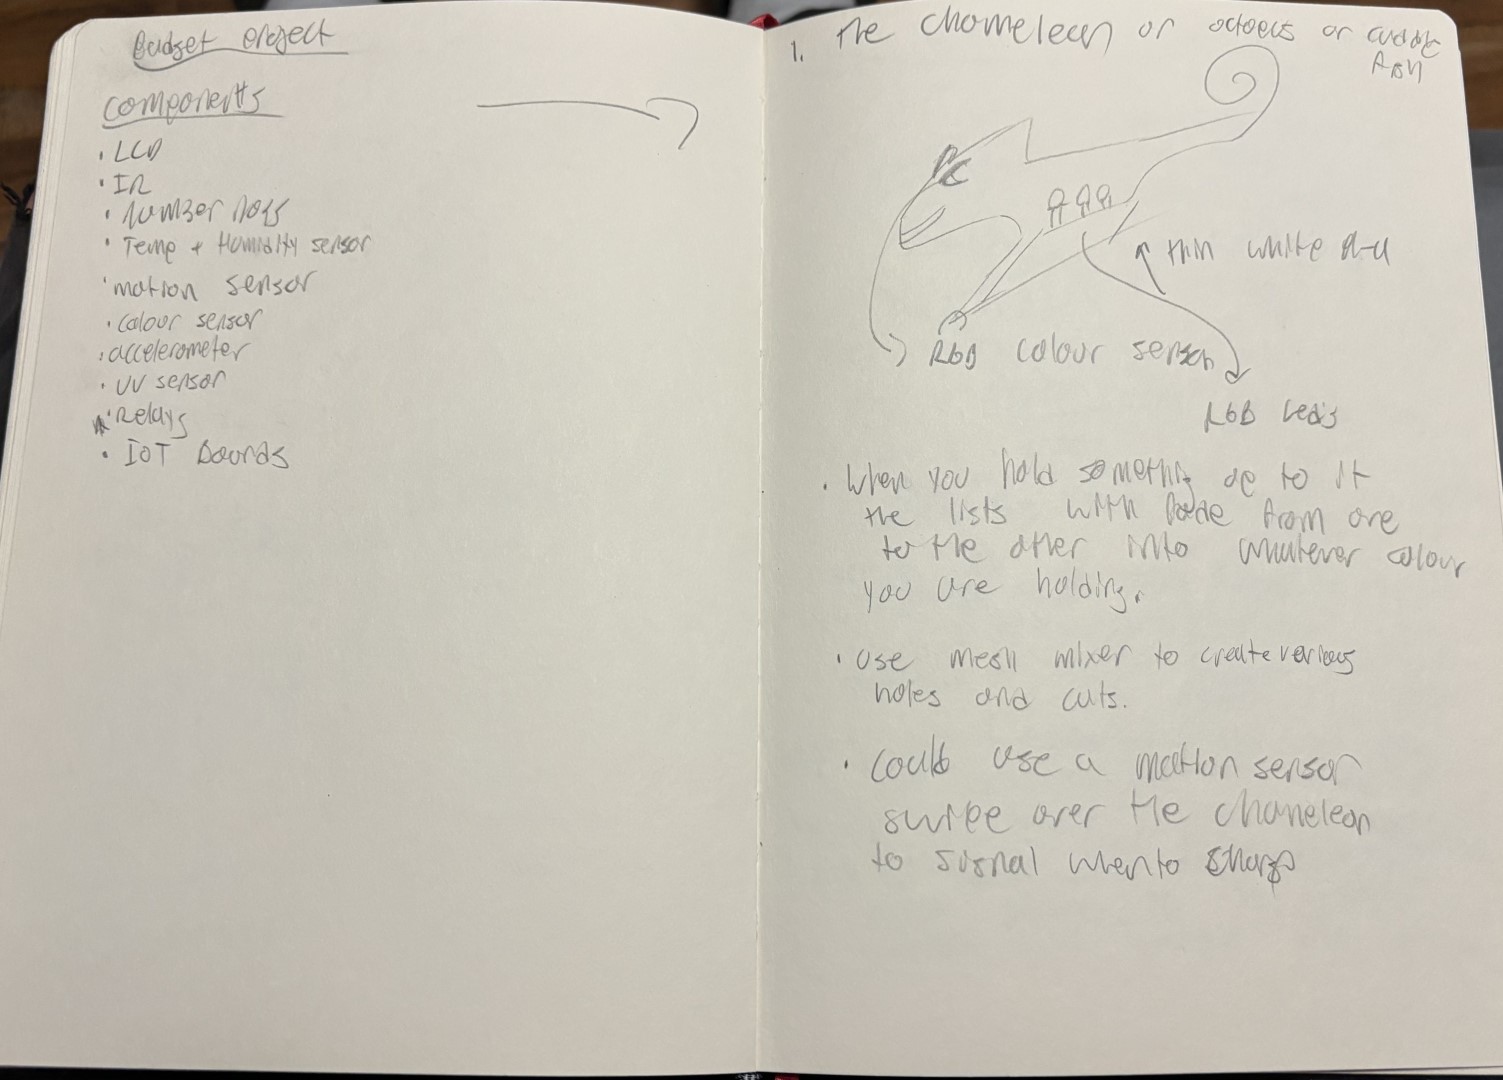 Budget project
components
· LCD
· IR
· Temp + Humidity sensor
· motion sensor
· colour sensor
· accelerometer
· UV sensor
· Relays
· IoT Bounds
1. The chameleon or or cuddle
fish
thin white
RGB colour sensor
RGB leds
· When you hold something up to it
the lists with fade from one
to the other into whatever colour
you are holding.
· use mesh mixer to create various
holes and cuts.
· could use a motion sensor
swipe over the chameleon
to signal when to